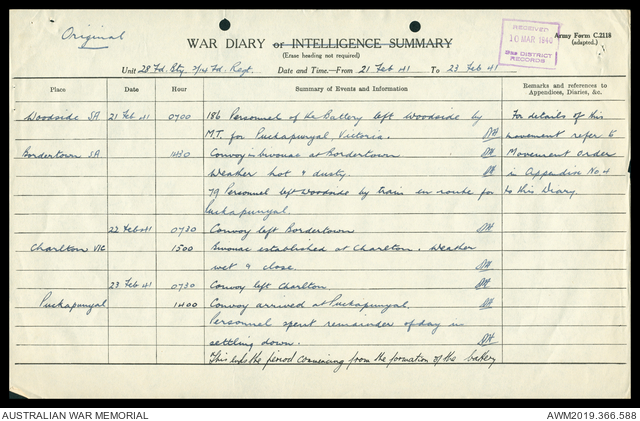 Original
WAR DIARY or INTELLIGENCE SUMMARY
(Erase heading not required)
RECEIVED
10 MAR 1940
DISTRICT
RECORDS
Army Form C.2118
(adapted.)
Unit 28 Fd. Bty. 2/14 Fd. Regt. Date and Time.—From 21 Feb 41 To 23 Feb 41
Place Date Hour Summary of Events and Information Remarks and references to Appendices, Diaries, &c.
Woodside SA 21 Feb 41 0700 186 Personnel of the Battery left Woodside by For details of this
M.T. for Puckapunyal, Victoria. DH movement refer to
Bordertown SA Convoy in bivouac at Bordertown DH Movement Order
Weather hot & dusty. DH in Appendix No. 4
79 Personnel left Woodside by train en route for to this Diary.
Puckapunyal.
22 Feb 41 0730 Convoy left Bordertown DH
Charlton VIC 1500 Bivouac established at Charlton. Weather
wet & close. DH
23 Feb 41 0730 Convoy left Charlton. DH
Puckapunyal 1400 Convoy arrived at Puckapunyal. DH
Personnel spent remainder of day in
settling down. DH
This ends the period commencing from the formation of the battery
AUSTRALIAN WAR MEMORIAL
AWM2019.366.588